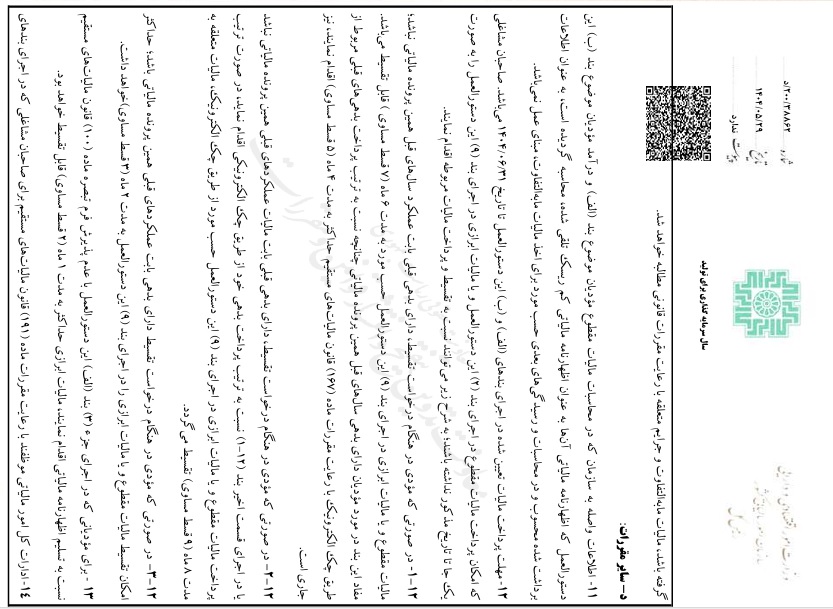 شماره: ۲۰۰/۲۸۸۶۲/د
تاریخ: ۱۴۰۴/۰۵/۲۹
پیوست: ندارد
سال سرمایه گذاری برای تولید
گرفته باشد، مالیات مابه‌التفاوت و جرایم متعلقه با رعایت مقررات قانونی مطالبه خواهد شد.
د- سایر مقررات:
۱۱- اطلاعات واصله به سازمان که در محاسبات مالیات مقطوع مؤدیان موضوع بند (الف) و درآمد مؤدیان موضوع بند (ب) این
دستورالعمل که اظهارنامه مالیاتی آن‌ها به عنوان اظهارنامه مالیاتی کم ریسک تلقی شده، محاسبه گردیده است، به عنوان اطلاعات
برداشت شده محسوب و در محاسبات و رسیدگی‌های بعدی حسب مورد برای اخذ مالیات مابه‌التفاوت، مبنای عمل نمی‌باشد.
۱۲- مهلت پرداخت مالیات تعیین شده در اجرای بندهای (الف) و (ب) این دستورالعمل تا تاریخ ۱۴۰۴/۰۶/۳۱ می‌باشد. صاحبان مشاغلی
که امکان پرداخت مالیات مقطوع در اجرای بند (۲) این دستورالعمل و یا مالیات ابرازی در اجرای بند (۹) این دستورالعمل را به صورت
یک جا تا تاریخ مذکور نداشته باشند به شرح زیر می‌توانند نسبت به تقسیط و پرداخت مالیات مربوطه اقدام نمایند.
۱-۱۲- در صورتی که مؤدی در هنگام درخواست تقسیط، دارای بدهی قبلی بابت عملکرد سال‌های قبل همین پرونده مالیاتی نباشد؛
مالیات مقطوع و یا مالیات ابرازی در اجرای بند (۹) این دستورالعمل حسب مورد به مدت ۶ ماه (۷ قسط مساوی) قابل تقسیط می‌باشد.
مفاد این بند در مورد مؤدیان دارای بدهی سال‌های قبل همین پرونده مالیاتی چنانچه نسبت به ترتیب پرداخت بدهی‌های قبلی مربوط از
طریق چک الکترونیک با رعایت مقررات ماده (۱۶۷) قانون مالیات‌های مستقیم حداکثر به مدت ۴ ماه (۵ قسط مساوی) اقدام نمایند، نیز
جاری است.
۲-۱۲- در صورتی که مؤدی در هنگام درخواست تقسیط، دارای بدهی قبلی بابت مالیات عملکردهای قبلی همین پرونده مالیاتی نباشد
یا در اجرای قسمت اخیر بند (۱-۱۲) نسبت به ترتیب پرداخت بدهی خود از طریق چک الکترونیکی اقدام نماید، در صورت ترتیب
پرداخت مالیات مقطوع و یا مالیات ابرازی در اجرای بند (۹) این دستورالعمل حسب مورد از طریق چک الکترونیک، مالیات متعلقه به
مدت ۸ ماه (۹ قسط مساوی) تقسیط می گردد.
۳-۱۲- در صورتی که مؤدی در هنگام درخواست تقسیط دارای بدهی بابت عملکردهای قبلی همین پرونده مالیاتی باشد؛ حداکثر
امکان تقسیط مالیات مقطوع و یا مالیات ابرازی را در اجرای بند (۹) این دستورالعمل به مدت ۲ ماه (۳ قسط مساوی) خواهد داشت.
۱۳- برای مؤدیانی که در اجرای جزء (۳) بند (الف) این دستورالعمل با عدم پذیرش فرم تبصره ماده (۱۰۰) قانون مالیات‌های مستقیم
نسبت به تسلیم اظهارنامه مالیاتی اقدام نمایند، مالیات ابرازی حداکثر به مدت ۱ ماه (۲ قسط مساوی) قابل تقسیط خواهد بود.
۱۴- ادارات کل امور مالیاتی موظفند با رعایت مقررات ماده (۱۹۱) قانون مالیات‌های مستقیم برای صاحبان مشاغلی که در اجرای بندهای